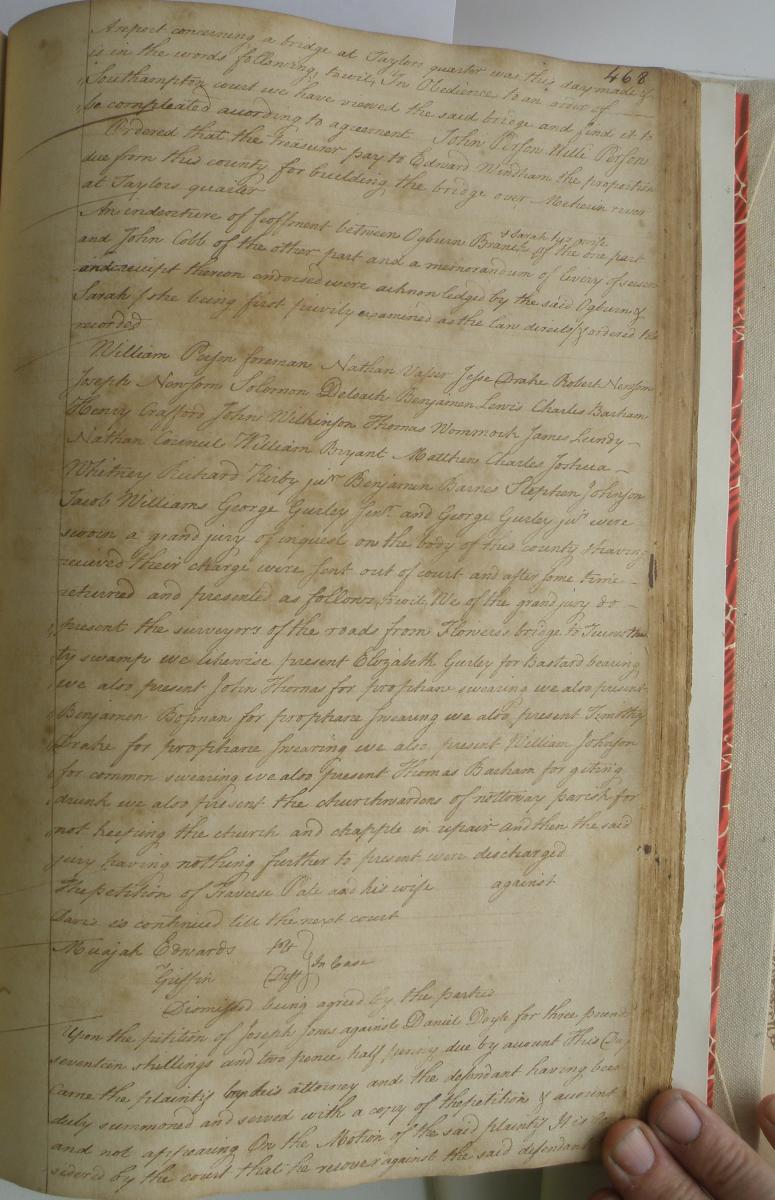 468
A report concerning a bridge at Taylors quarter was this day made &
is in the words following, towit, In Obedience to an order of
Southampton court we have viewed the said bridge and find it to
be compleated according to agreement John Person Will Person
Ordered that the Treasurer pay to Edward Windham the proportion
due from this county for building the bridge over Meherin river
at Taylors quarter
An indenture of feoffment between Ogburn Branch & Sarah his wife of the one part
and John Cobb of the other part and a memorandum of livery of seisin
and receipt thereon endorsed were acknowledged by the said Ogburn &
Sarah (she being first privily examined as the law directs) & ordered to be
recorded
William Person foreman Nathan Vasser Jesse Drake Robert Newsom
Joseph Newsom Solomon Deloach Benjamen Lewis Charles Barham
Henry Crafford John Wilkinson Thomas Wommock James Lundy
Nathan Council William Bryant Matthew Charles Joshua
Whitney Richard Kirby junr Benjamen Barnes Stephen Johnson
Jacob Williams George Gurley Senr and George Gurley junr were
sworn a grand jury of inquest on the body of this county & having
recieved their charge were sent out of court and after some time
returned and presented as follows, towit, We of the grand jury do
present the surveyors of the roads from Flowers's bridge to
ty swamp we likewise present Elizabeth Gurley for Bastard bearing
we also present John Thomas for prophane swearing we also present
Benjamen Bosman for prophane swearing we also present Timothy
Drake for prophane swearing we also present William Johnson
for common swearing we also present Thomas Barham for giting
drunk we also present the churchwardens of nottoway parish for
not keeping the church and chapple in repair and then the said
jury having nothing further to present were discharged
The petition of Traverse Pale and his wife against
Davis is continued till the next court
Micajah Edwards plt
Griffin Deft } In Case
Dismissed being agreed by the parties
Upon the petition of Joseph Jones against Daniel Doyle for three pounds
seventeen shillings and two pence half penny due by account This Day
came the plaintif by his attorney and the defendant having been
duly summoned and served with a copy of the petition & account
and not appearing On the Motion of the said plaintif It is
sidered by the court that he recover against the said defendant